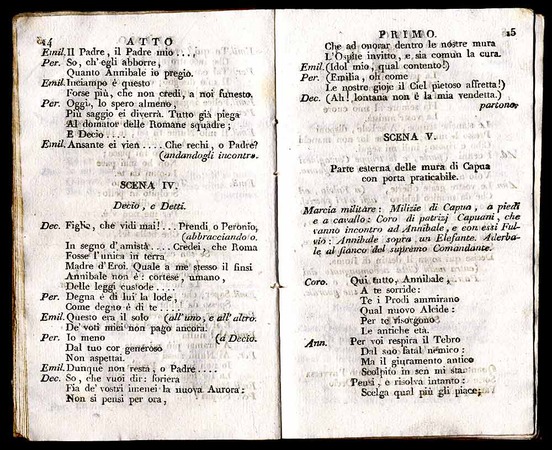 14 ATTO
Emil. Il Padre, il Padre mio....
Per. So, ch'egli abborre,
Quanto Annibale io pregio.
Emil. Inciampo è questo
Forse più, che non credi, a noi funesto.
Per. Oggi, lo spero almeno,
Più saggio ei diverrà. Tutto già piega
Al domator delle Romane squadre;
E Decio....
Emil. Ansante ei vien.... Che rechi, o Padre?
(andandogli incontro.
SCENA IV.
Decio, e Detti.
Dec. Figlie, che vidi mai!... Prendi o Peronio,
(abbracciando o.
In segno d'amistà.... Credei, che Roma
Fosse l'unica in terra
Madre d'Eroi. Quale a me stesso il finsi
Annibale non è: cortese, umano,
Delle leggi custode....
Per. Degna è di lui la lode,
Come degno è di te....
Emil. Questo era il solo (all'uno, e all'altro.
De' voti miei non pago ancora.
Per. Io meno (a Decio.
Dal tuo cor generoso
Non aspettai.
Emil. Dunque non resta, o Padre....
Dec. So, che vuoi dir: foriera
Fia de' vostri imenei la nuova Aurora:
Non si pensi per ora,
PRIMO. 15
Che ad onorar dentro le nostre mura
L'Ospite invitto, e sia comun la cura.
Emil. (Idol mio, qual contento!)
Per. (Emilia, oh come
Le nostre gioje il Ciel pietoso affretta!)
Dec. (Ah! lontana non è la mia vendetta.)
partono.
SCENA V.
Parte esterna delle mura di Capua
con porta praticabile.
Marcia militare: Milizie di Capua, a piedi
e a cavallo: Coro di patrizj Capuani, che
vanno incontro ad Annibale, e con essi Ful-
vio: Annibale sopra un Elefante. Aderba-
le al fianco del supremo Comandante.
Coro. Qui tutto, Annibale,
A te sorride:
Te i Prodi ammirano
Qual nuovo Alcide:
Per te risorgono
Le antiche età.
Ann. Per voi respira il Tebro
Dal suo fatal nemico:
Ma il giuramento antico
Scolpito in sen mi sta.
Pensi, e risolva intanto:
Scelga qual più gli piace;